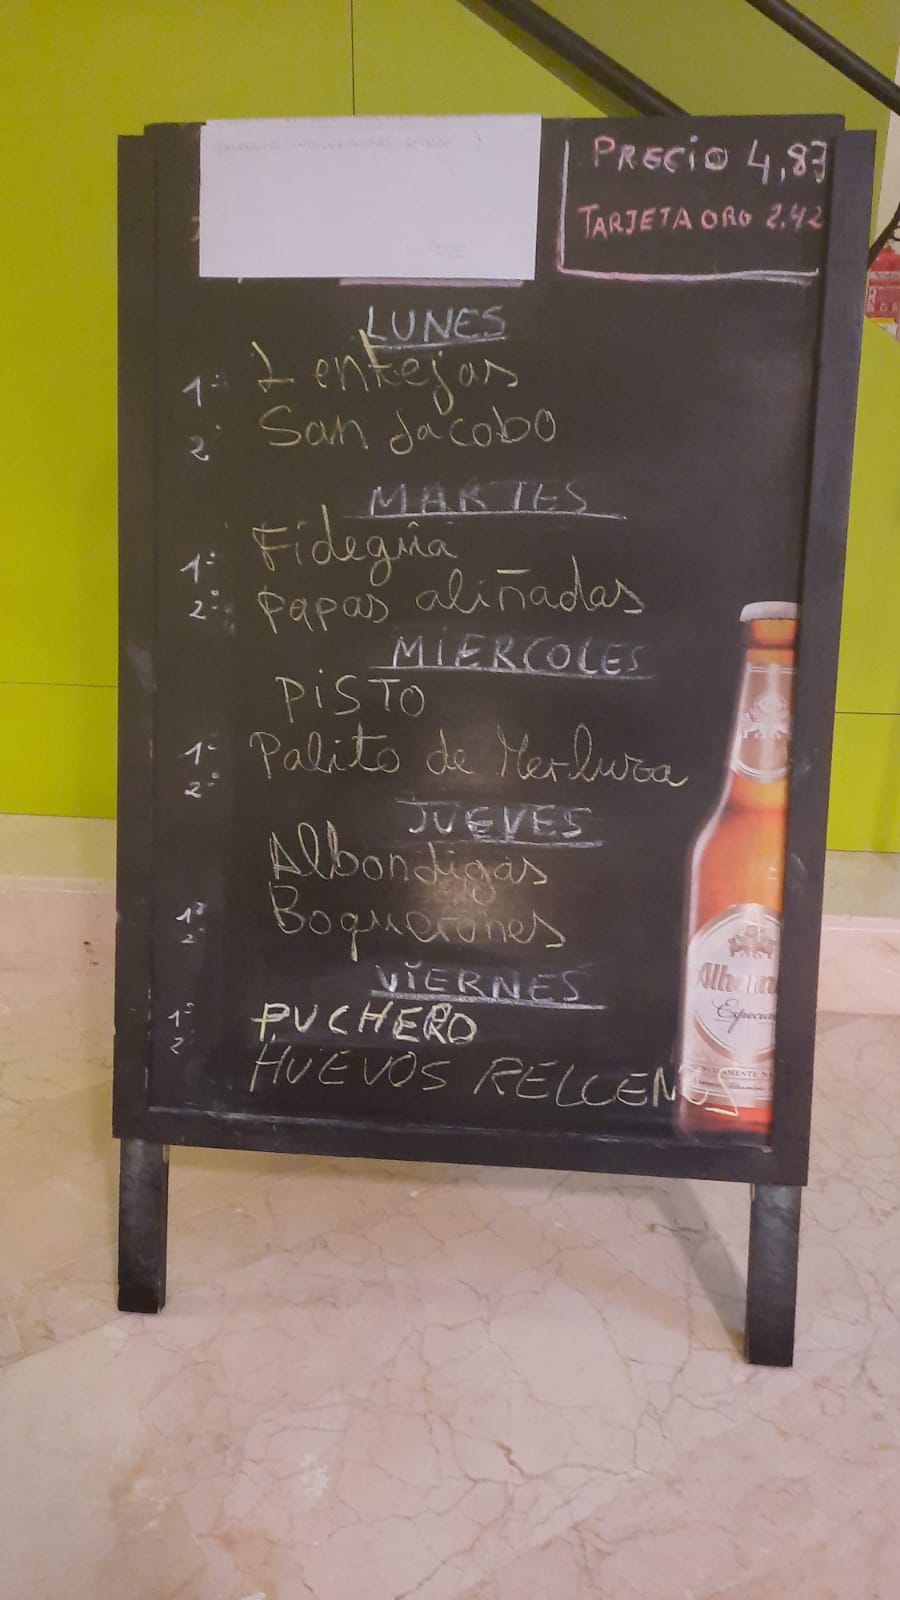 PRECIO 4,83
TARJETA ORO 2,42
LUNES
1º Lentejas
2º San Jacobo
MARTES
1º Fidegüia
2º papas aliñadas
MIERCOLES
PISTO
1º Palito de Merluza
2º
JUEVES
Albondigas
1º Boquerones
2º
VIERNES
1º PUCHERO
2º HUEVOS RELLENOS
Alham
Especial